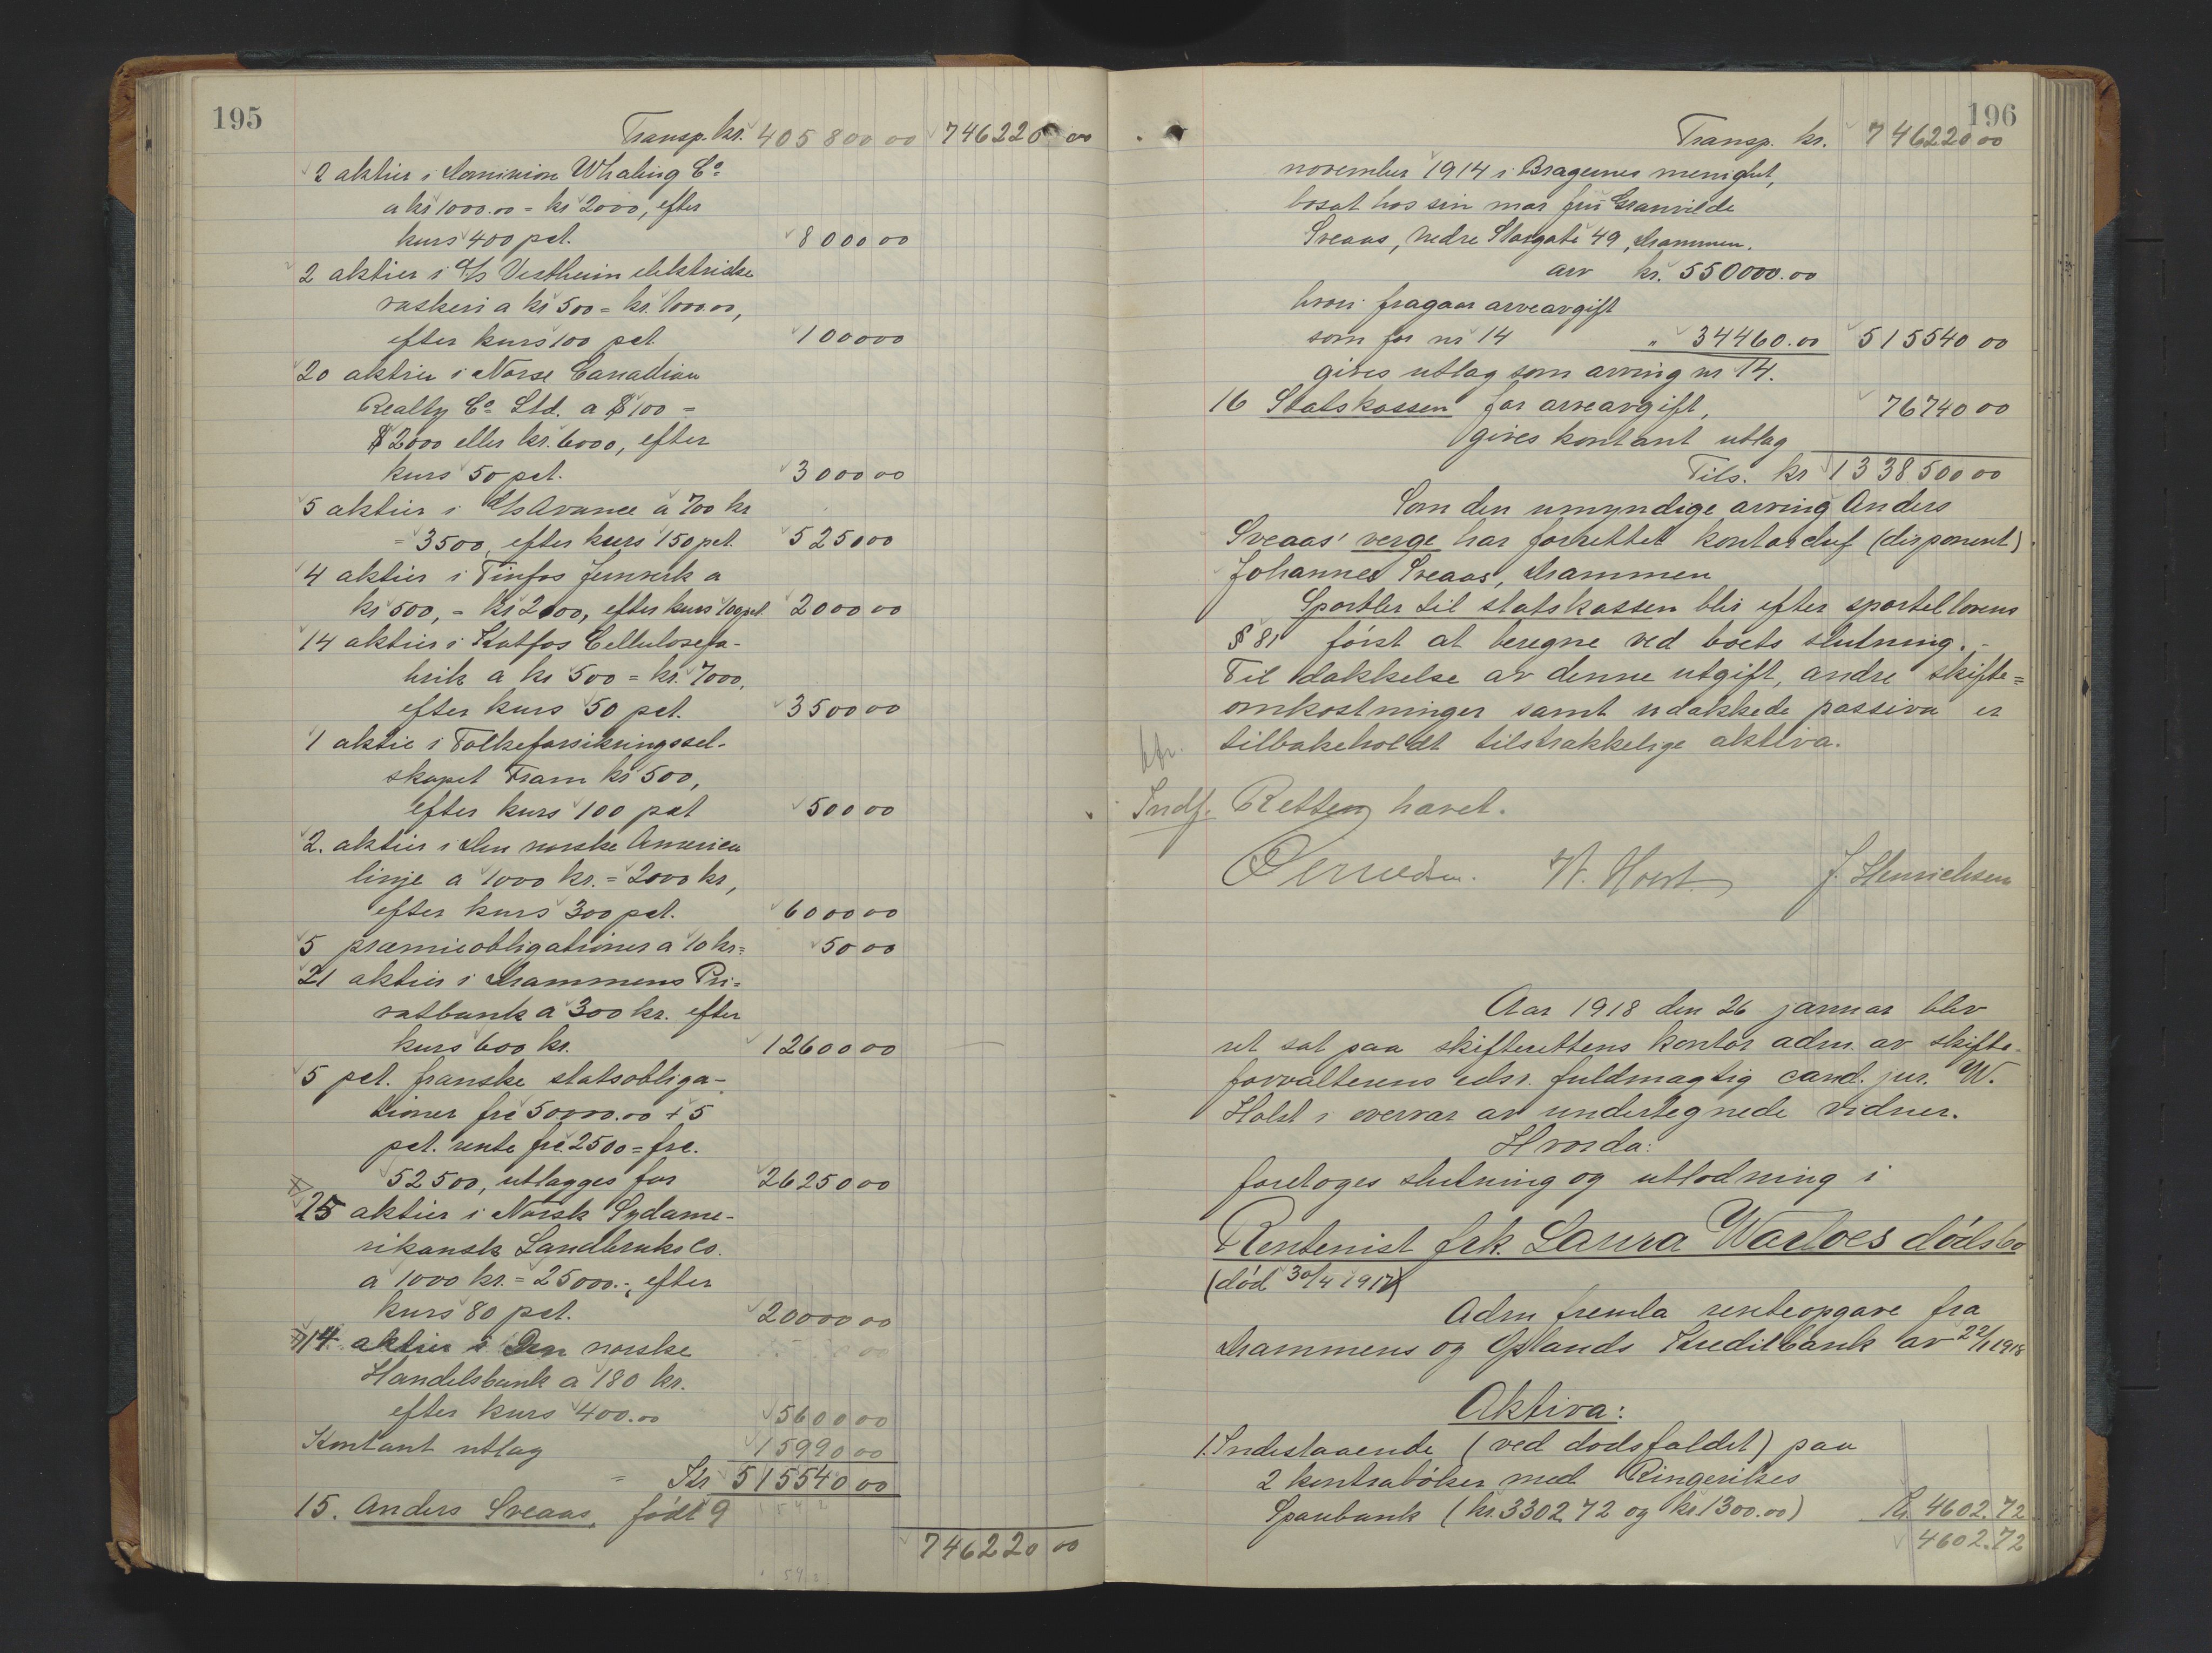 195
Transp. kr. 405800 00 746220 00
2 aktier i Dominion Whaling Co
a kr 1000.00 = kr 2000, efter
kurs 400 pct. 8000 00
2 aktier i A/s Vestheim elektriske
vaskeri a kr 500 = kr. 1000.00,
efter kurs 100 pct 1000 00
20 aktier i Norse Canadian
Realty Co Ltd. a $ 100 =
$ 2000 eller kr. 6000, efter
kurs 50 pct. 3000 00
5 aktier i A/s Avance a 700 kr
= 3500, efter kurs 150 pct. 5250 00
4 aktier i Tinfos Jernverk a
kr 500, = kr 2000, efter kurs 100 pct. 2000 00
14 aktier i Katfos Cellulosefa-
brik a kr 500 = kr. 7000,
efter kurs 50 pct. 3500 00
1 aktie i Folkeforsikringssel-
skapet Fram kr 500,
efter kurs 100 pct 500 00
2. aktier i Den norske America
linje a 1000 kr. = 2000 kr,
efter kurs 300 pct. 6000 00
5 præmieobligationer a 10 kr = 50 00
21 aktier i Drammens Pri-
vatbank a 300 kr. efter
kurs 600 kr. 12600 00
5 pct. franske statsobliga-
tioner frc 50000.00 + 5
pct. rente frc. 2500 = frc.
52500, utlægges for 26250 00
25 aktier i Norsk Sydame-
rikansk Landbruks Co.
a 1000 kr. = 25000.-, efter
kurs 80 pct. 20000 00
14 aktier i Den norske
Handelsbank a 180 kr.
efter kurs 400.00 5600 00
Kontant utlæg 15990 00
= Kr 515540 00
15. Anders Sveaas, født 9
746220 00
196
Transp. kr. 746220 00
november 1914 i Bragernes menighet,
bosat hos sin mor fru Granvilde
Sveaas, Nedre Storgate 49, Drammen.
arv kr. 550000.00
hvori fragaar arveavgift
som for nr 14 " 34460.00 515540 00
gives utlæg som arving nr 14.
16 Statskassen for arveavgift, 76740 00
gives kontant utlæg
Tils. kr 1338500 00
Som den umyndige arving Anders
Sveaas' verge har forrettet kontorchef (disponent)
Johannes Sveaas, Drammen
Sportler til statskassen blir efter sportellovens
§ 81 først at beregne ved boets slutning.-
Til dækkelse av denne utgift, andre skifte=
omkostninger samt udækkede passiva er
tilbakeholdt tilstrækkelige aktiva.
Indf. Retten hævet.
W. Holst. J. Henrichsen
Aar 1918 den 26 januar blev
ret sat paa skifterettens kontor adm. av skifte-
forvalterens edsv. fuldmægtig cand. jur. W.
Holst i overvær av undertegnede vidner.
Hvorda:
foretoges slutning og utlodning i
Rentenist frk. Laura Waeloes dødsbo
(død 30/4 1917)
Adm fremla renteopgave fra
Drammens og Oplands Kreditbank av 22/1 1918
Aktiva:
1. Indestaaende (ved dødsfaldet) paa
2 kontrabøker med Ringerikes
Sparebank (kr. 3302.72 og kr. 1300.00) Kr. 4602.72
4602.72